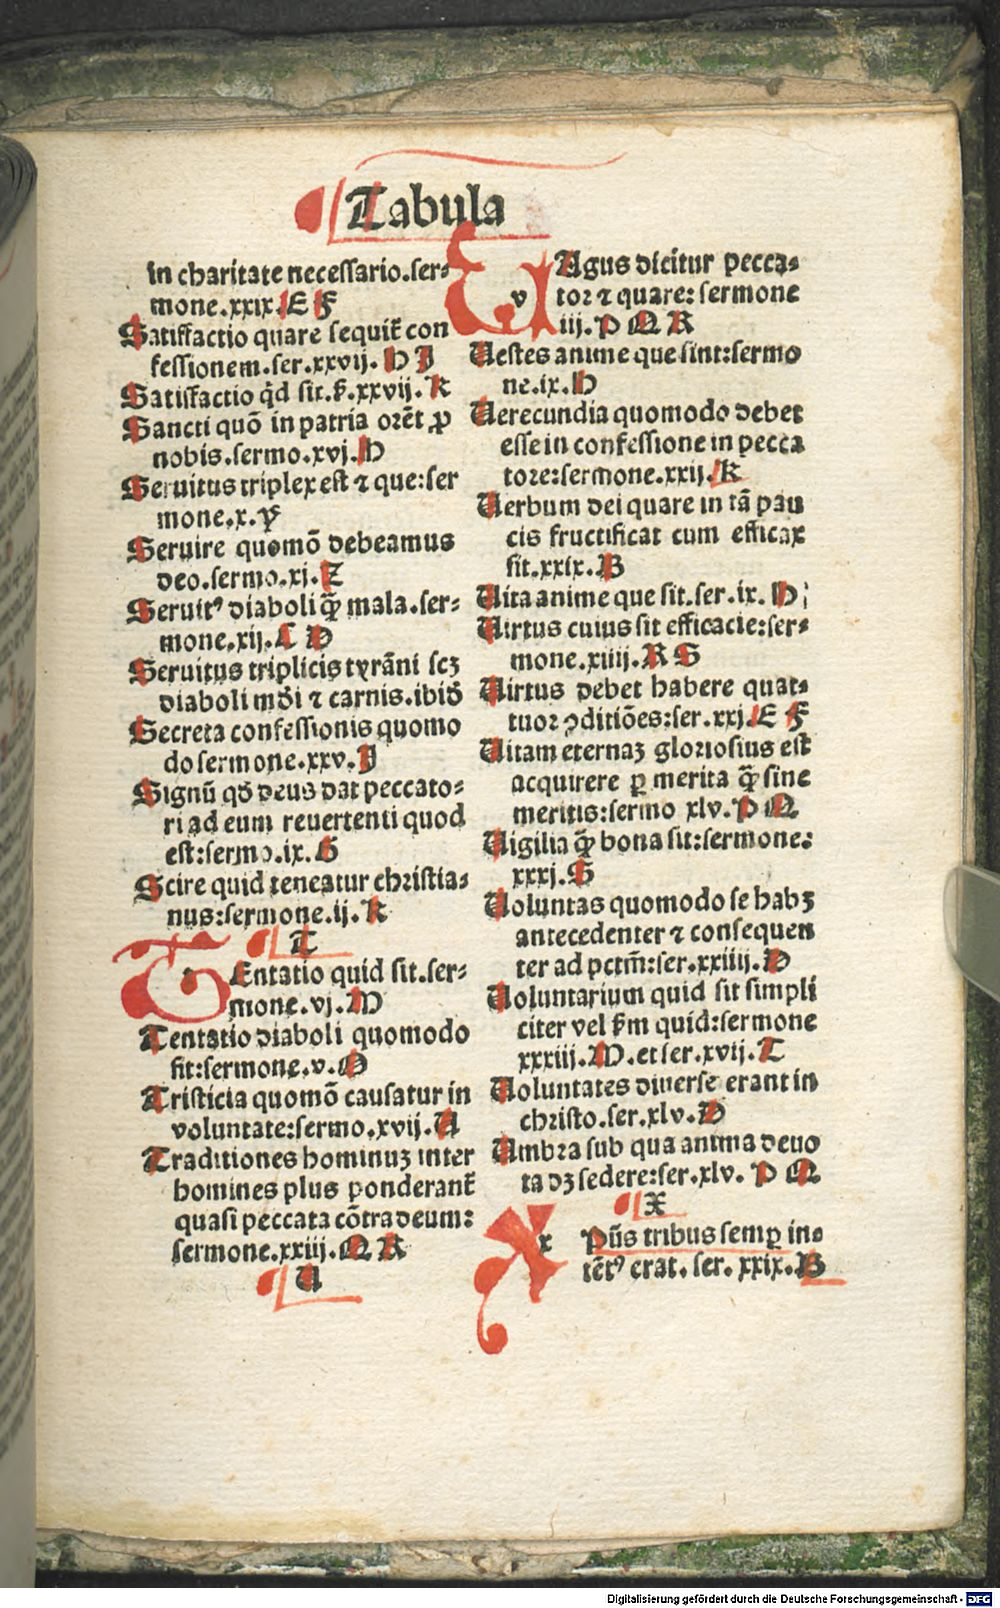 Tabula
in charitate necessario.ser⸗
mone.xxix.E F
Satisfactio quare sequit᷑ con
fessionem.ser.xxvij. H J
Satisfactio qͥd sit.ẜ.xxvij.K
Sancti quō in patria orēt ꝓ
nobis.sermo.xvj.H
Seruitus triplex est ⁊ que:ser
mone.x.
Seruire quomō debeamus
deo.sermo.xj.Z
Seruitꝰ diaboli q̄ꝫ mala.ser⸗
mone.xij.C D
Seruitus triplicis tyrāni scꝫ
diaboli mūdi ⁊ carnis.ibid̄
Secreta confessionis quomo
do sermone.xxv.J
Signū qd̄ deus dat peccato⸗
ri ad eum reuertenti quod
est:sermo.ix.G
Scire quid teneatur christia⸗
nus:sermone.ij.K
T
TEntatio quid sit.ser⸗
mone.vj.M
Tentatio diaboli quomodo
fit:sermone.v.O
Tristicia quomō causatur in
voluntate:sermo.xvij.U
Traditiones hominuꝫ inter
homines plus ponderant᷑
quasi peccata cōtra deum:
sermone.xxiij.Q R
U
v UAgus dicitur pecca⸗
tor ⁊ quare: sermone
iij.P Q R
Uestes anime que sint:sermo
ne.ix.H
Uerecundia quomodo debet
esse in confessione in pecca
tore:sermone.xxij.K
Uerbum dei quare in tā pau
cis fructificat cum efficax
sit.xxix.B
Uita anime que sit.ser.ix.H
Uirtus cuius sit efficacie:ser⸗
mone.xiiij.R S
Uirtus debet habere quat⸗
tuor ↄditiōes:ser.xxj.E F
Uitam eternaꝫ gloriosius est
acquirere ꝑ merita q̄ꝫ sine
meritis:sermo xlv.P Q
Uigilia q̄ꝫ bona sit:sermone:
xxxj.S
Uoluntas quomodo se habꝫ
antecedenter ⁊ consequen
ter ad pctm̄:ser.xxiiij.D
Uoluntarium quid sit simpli
citer vel ẜm quid:sermone
xxxiij.M.et ser.xvij.T
Uoluntates diuerse erant in
christo.ser.xlv.D
Umbra sub qua anima deuo
ta dꝫ sedere:ser.xlv. P Q
X
x Xpūs tribus semꝑ in⸗
tētꝰ erat. ser. xxix.B
Digitalisierung gefördert durch die Deutsche Forschungsgemeinschaft - DFG